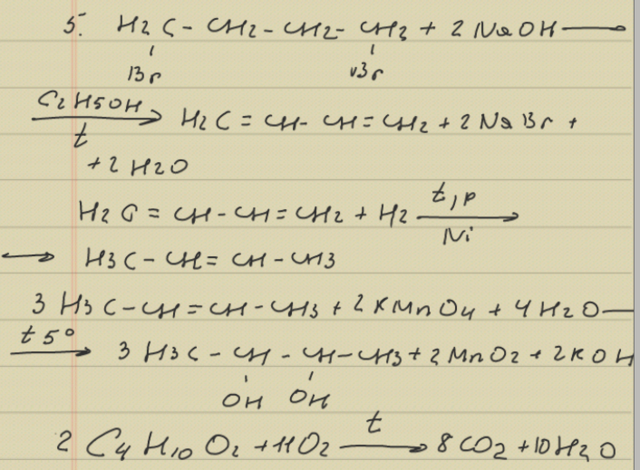 5. H2C - CH2 - CH2 - CH2 + 2 NaOH ⟶
Br Br
C2H5OH
⟶ H2C = CH - CH = CH2 + 2 NaBr +
t
+ 2 H2O
H2C = CH - CH = CH2 + H2 ⟶ t, p
Ni
⟷ H3C - CH = CH - CH3
3 H3C - CH = CH - CH3 + 2 KMnO4 + 4 H2O —
t 5° ⟶ 3 H3C - CH - CH - CH3 + 2 MnO2 + 2 KOH
OH OH
t
2 C4H10O2 + 11O2 ⟶ 8CO2 + 10H2O